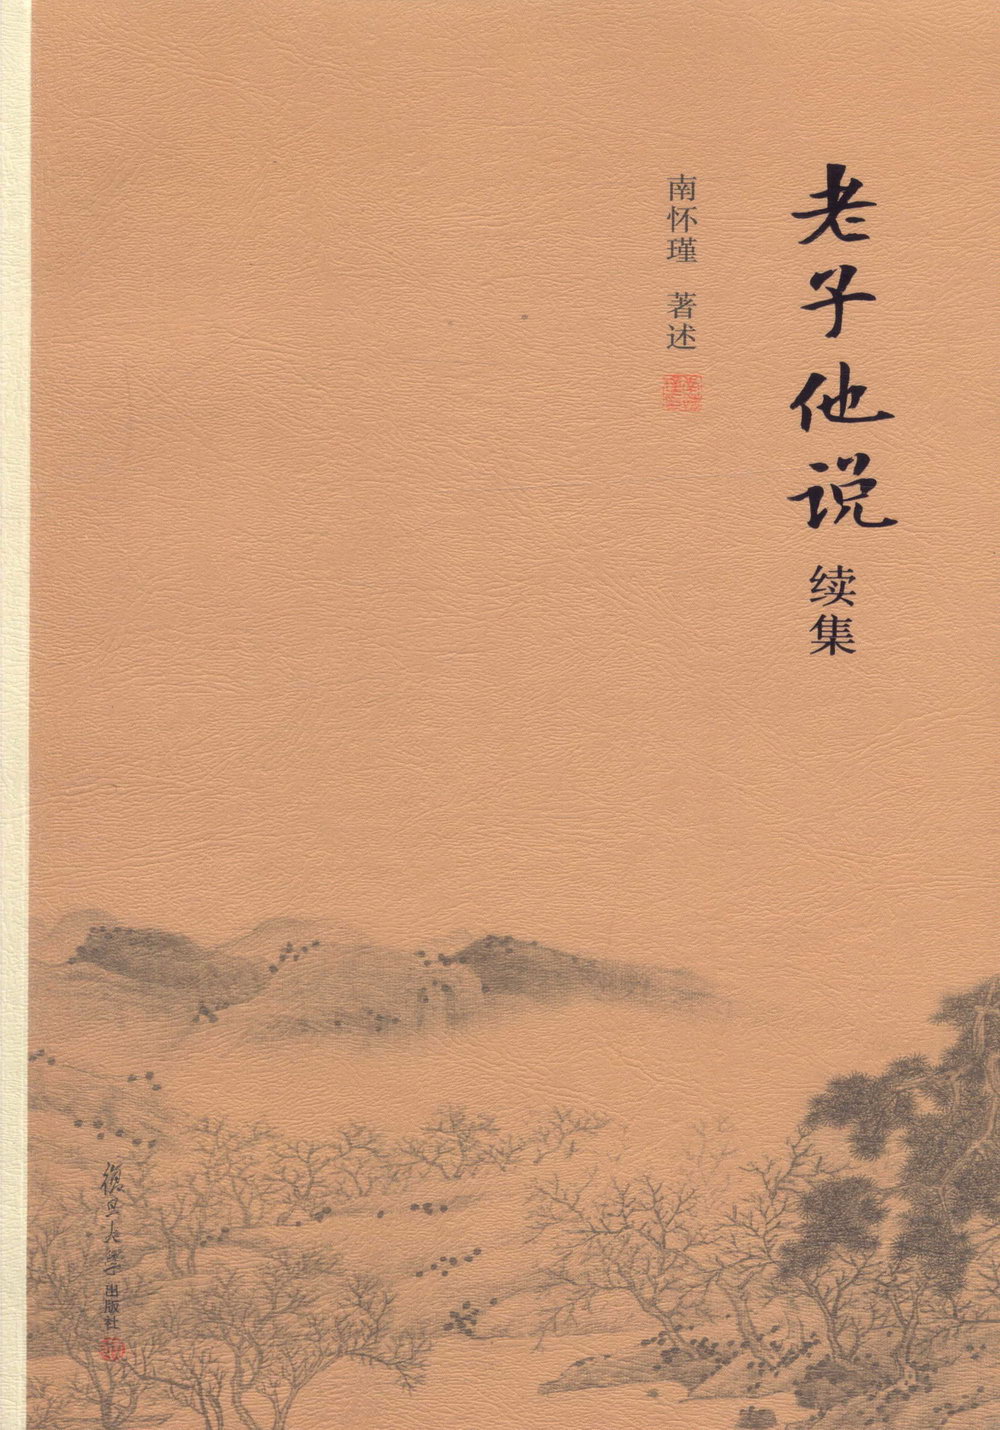 老子他说
续集
南怀瑾 著述
復旦大学
出版社